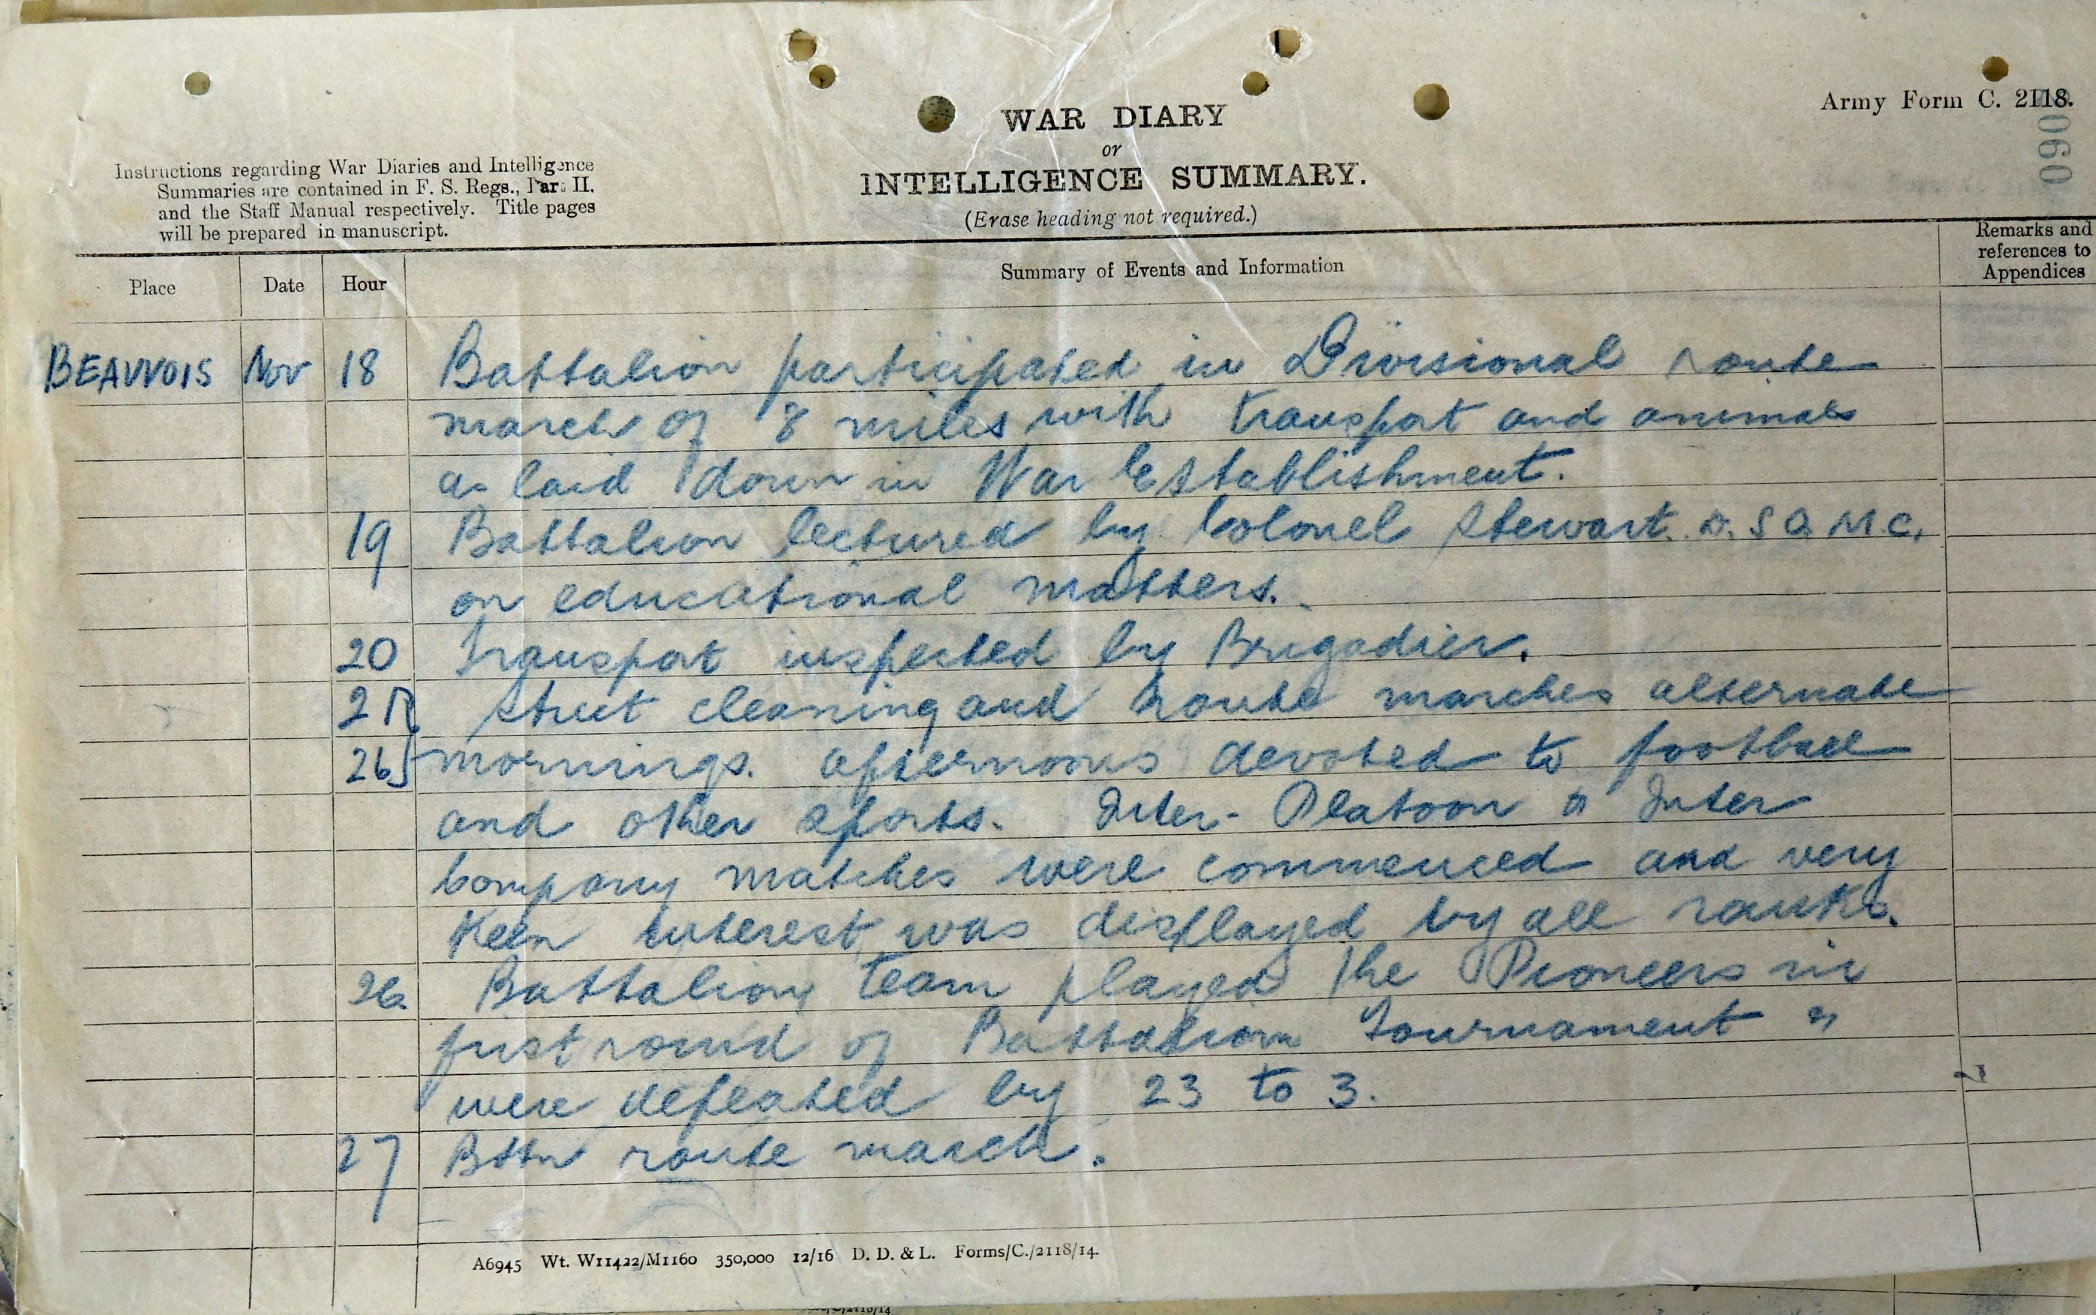 Army Form C. 2118.
090
WAR DIARY
or
INTELLIGENCE SUMMARY.
(Erase heading not required.)
Instructions regarding War Diaries and Intelligence
Summaries are contained in F. S. Regs., Part II.
and the Staff Manual respectively. Title pages
will be prepared in manuscript.
Place Date Hour Summary of Events and Information Remarks and references to Appendices
BEAUVOIS Nov 18 Battalion participated in Divisional route
march of 8 miles with transport and animals
as laid down in War Establishment.
19 Battalion lectured by Colonel Stewart. D.S.O. M.C.
on educational matters.
20 Transport inspected by Brigadier.
21 Street cleaning and route marches alternate
26 mornings. afternoons devoted to football
and other sports. Inter-Platoon & Inter
Company matches were commenced and very
keen interest was displayed by all ranks.
26. Battalion team played the Pioneers in
first round of Battalion Tournament &
were defeated by 23 to 3.
27 Bttn route march.
A6945 Wt. W11422/M1160 350,000 12/16 D. D. & L. Forms/C./2118/14.